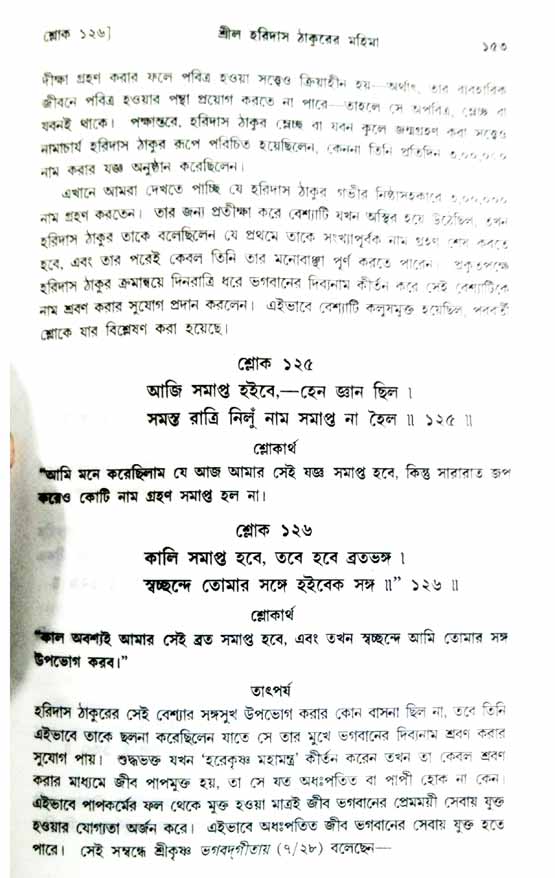 শ্লোক ১২৬]
শ্রীল হরিদাস ঠাকুরের মহিমা
১৫৩
দীক্ষা গ্রহণ করার ফলে পবিত্র হওয়া সত্ত্বেও ক্রিয়াহীন হয়—অর্থাৎ, তার ব্যবহারিক
জীবনে পবিত্র হওয়ার পন্থা প্রয়োগ করতে না পারে—তাহলে সে অপবিত্র, ম্লেচ্ছ বা
যবনই থাকে। পক্ষান্তরে, হরিদাস ঠাকুর ম্লেচ্ছ বা যবন কুলে জন্মগ্রহণ করা সত্ত্বেও
নামাচার্য হরিদাস ঠাকুর রূপে পরিচিত হয়েছিলেন, কেননা তিনি প্রতিদিন ৩,০০,০০০
নাম করার যজ্ঞ অনুষ্ঠান করেছিলেন।
এখানে আমরা দেখতে পাচ্ছি যে হরিদাস ঠাকুর গভীর নিষ্ঠাসহকারে ৩,০০,০০০
নাম গ্রহণ করতেন। তার জন্য প্রতীক্ষা করে বেশ্যাটি যখন অস্থির হয়ে উঠেছিল, তখন
হরিদাস ঠাকুর তাকে বলেছিলেন যে প্রথমে তাকে সংখ্যাপূর্বক নাম গ্রহণ শেষ করতে
হবে, এবং তার পরেই কেবল তিনি তার মনোবাঞ্ছা পূর্ণ করতে পারেন। প্রকৃতপক্ষে
হরিদাস ঠাকুর ক্রমান্বয়ে দিনরাত্রি ধরে ভগবানের দিব্যনাম কীর্তন করে সেই বেশ্যাটিকে
নাম শ্রবণ করার সুযোগ প্রদান করলেন। এইভাবে বেশ্যাটি কলুষমুক্ত হয়েছিল, পরবর্তী
শ্লোকে যার বিশ্লেষণ করা হয়েছে।
শ্লোক ১২৫
আজি সমাপ্ত হইবে,—হেন জ্ঞান ছিল ।
সমস্ত রাত্রি নিলুঁ নাম সমাপ্ত না হৈল ॥ ১২৫ ॥
শ্লোকার্থ
“আমি মনে করেছিলাম যে আজ আমার সেই যজ্ঞ সমাপ্ত হবে, কিন্তু সারারাত জপ
করেও কোটি নাম গ্রহণ সমাপ্ত হল না।
শ্লোক ১২৬
কালি সমাপ্ত হবে, তবে হবে ব্রতভঙ্গ ।
স্বচ্ছন্দে তোমার সঙ্গে হইবেক সঙ্গ ॥” ১২৬ ॥
শ্লোকার্থ
“কাল অবশ্যই আমার সেই ব্রত সমাপ্ত হবে, এবং তখন স্বচ্ছন্দে আমি তোমার সঙ্গ
উপভোগ করব।”
তাৎপর্য
হরিদাস ঠাকুরের সেই বেশ্যার সঙ্গসুখ উপভোগ করার কোন বাসনা ছিল না, তবে তিনি
এইভাবে তাকে ছলনা করেছিলেন যাতে সে তার মুখে ভগবানের দিব্যনাম শ্রবণ করার
সুযোগ পায়। শুদ্ধভক্ত যখন ‘হরেকৃষ্ণ মহামন্ত্র’ কীর্তন করেন তখন তা কেবল শ্রবণ
করার মাধ্যমে জীব পাপমুক্ত হয়, তা সে যত অধঃপতিত বা পাপী হোক না কেন।
এইভাবে পাপকর্মের ফল থেকে মুক্ত হওয়া মাত্রই জীব ভগবানের প্রেমময়ী সেবায় যুক্ত
হওয়ার যোগ্যতা অর্জন করে। এইভাবে অধঃপতিত জীব ভগবানের সেবায় যুক্ত হতে
পারে। সেই সম্বন্ধে শ্রীকৃষ্ণ ভগবদ্‌গীতায় (৭/২৮) বলেছেন—